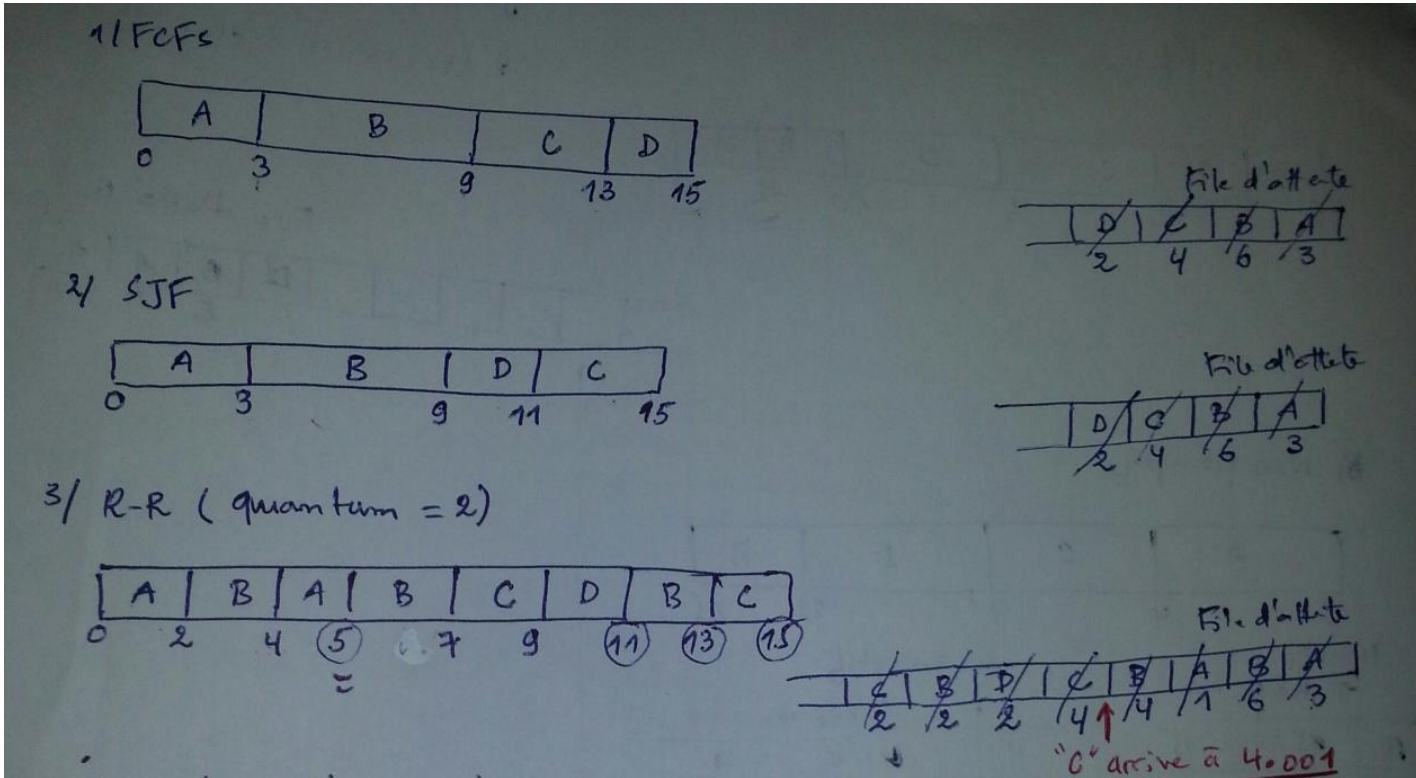 1/ FCFS
A B C D
0 3 9 13 15
File d'attente
D C B A
2 4 6 3
2/ SJF
A B D C
0 3 9 11 15
File d'attete
D C B A
2 4 6 3
3/ R-R ( quantum = 2)
A B A B C D B C
0 2 4 5 7 9 11 13 15
=
File d'attete
C B D C B A B A
2 2 2 4 4 1 6 3
"C" arrive à 4.001